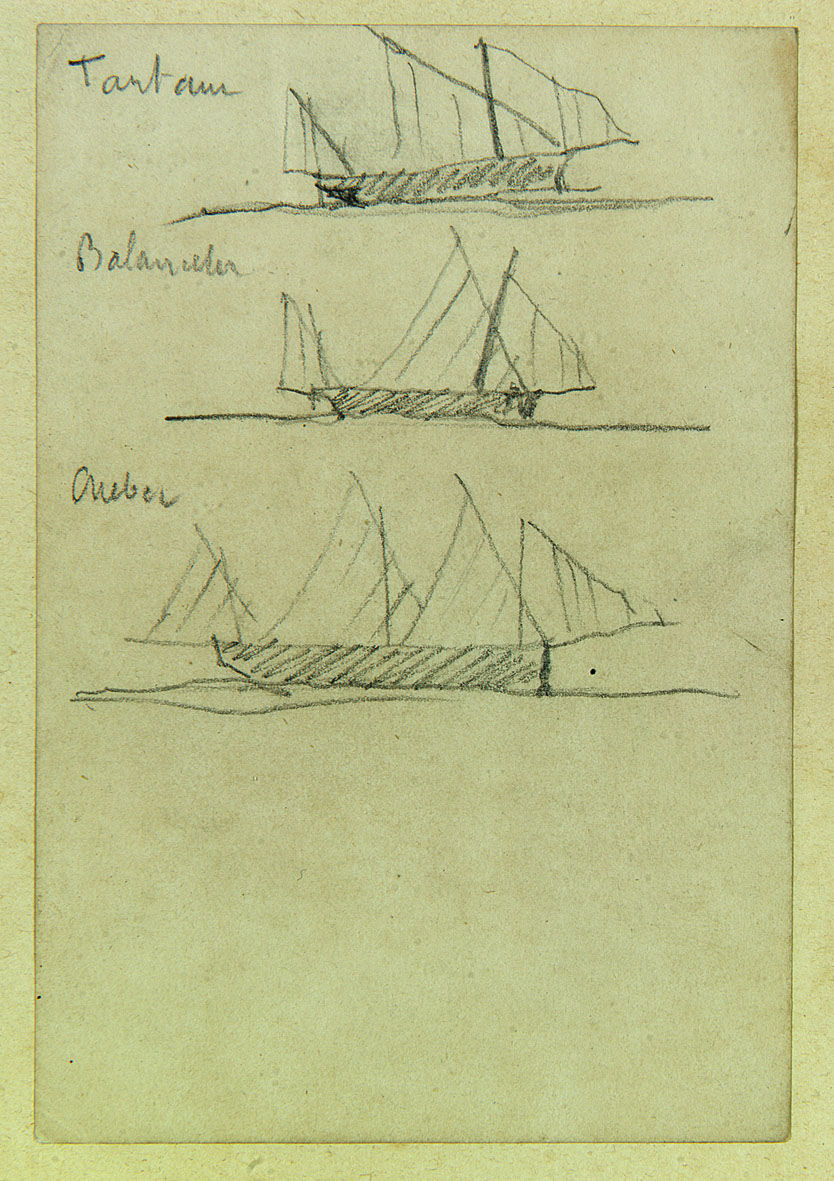 Tartane
Balancelle
Chebec